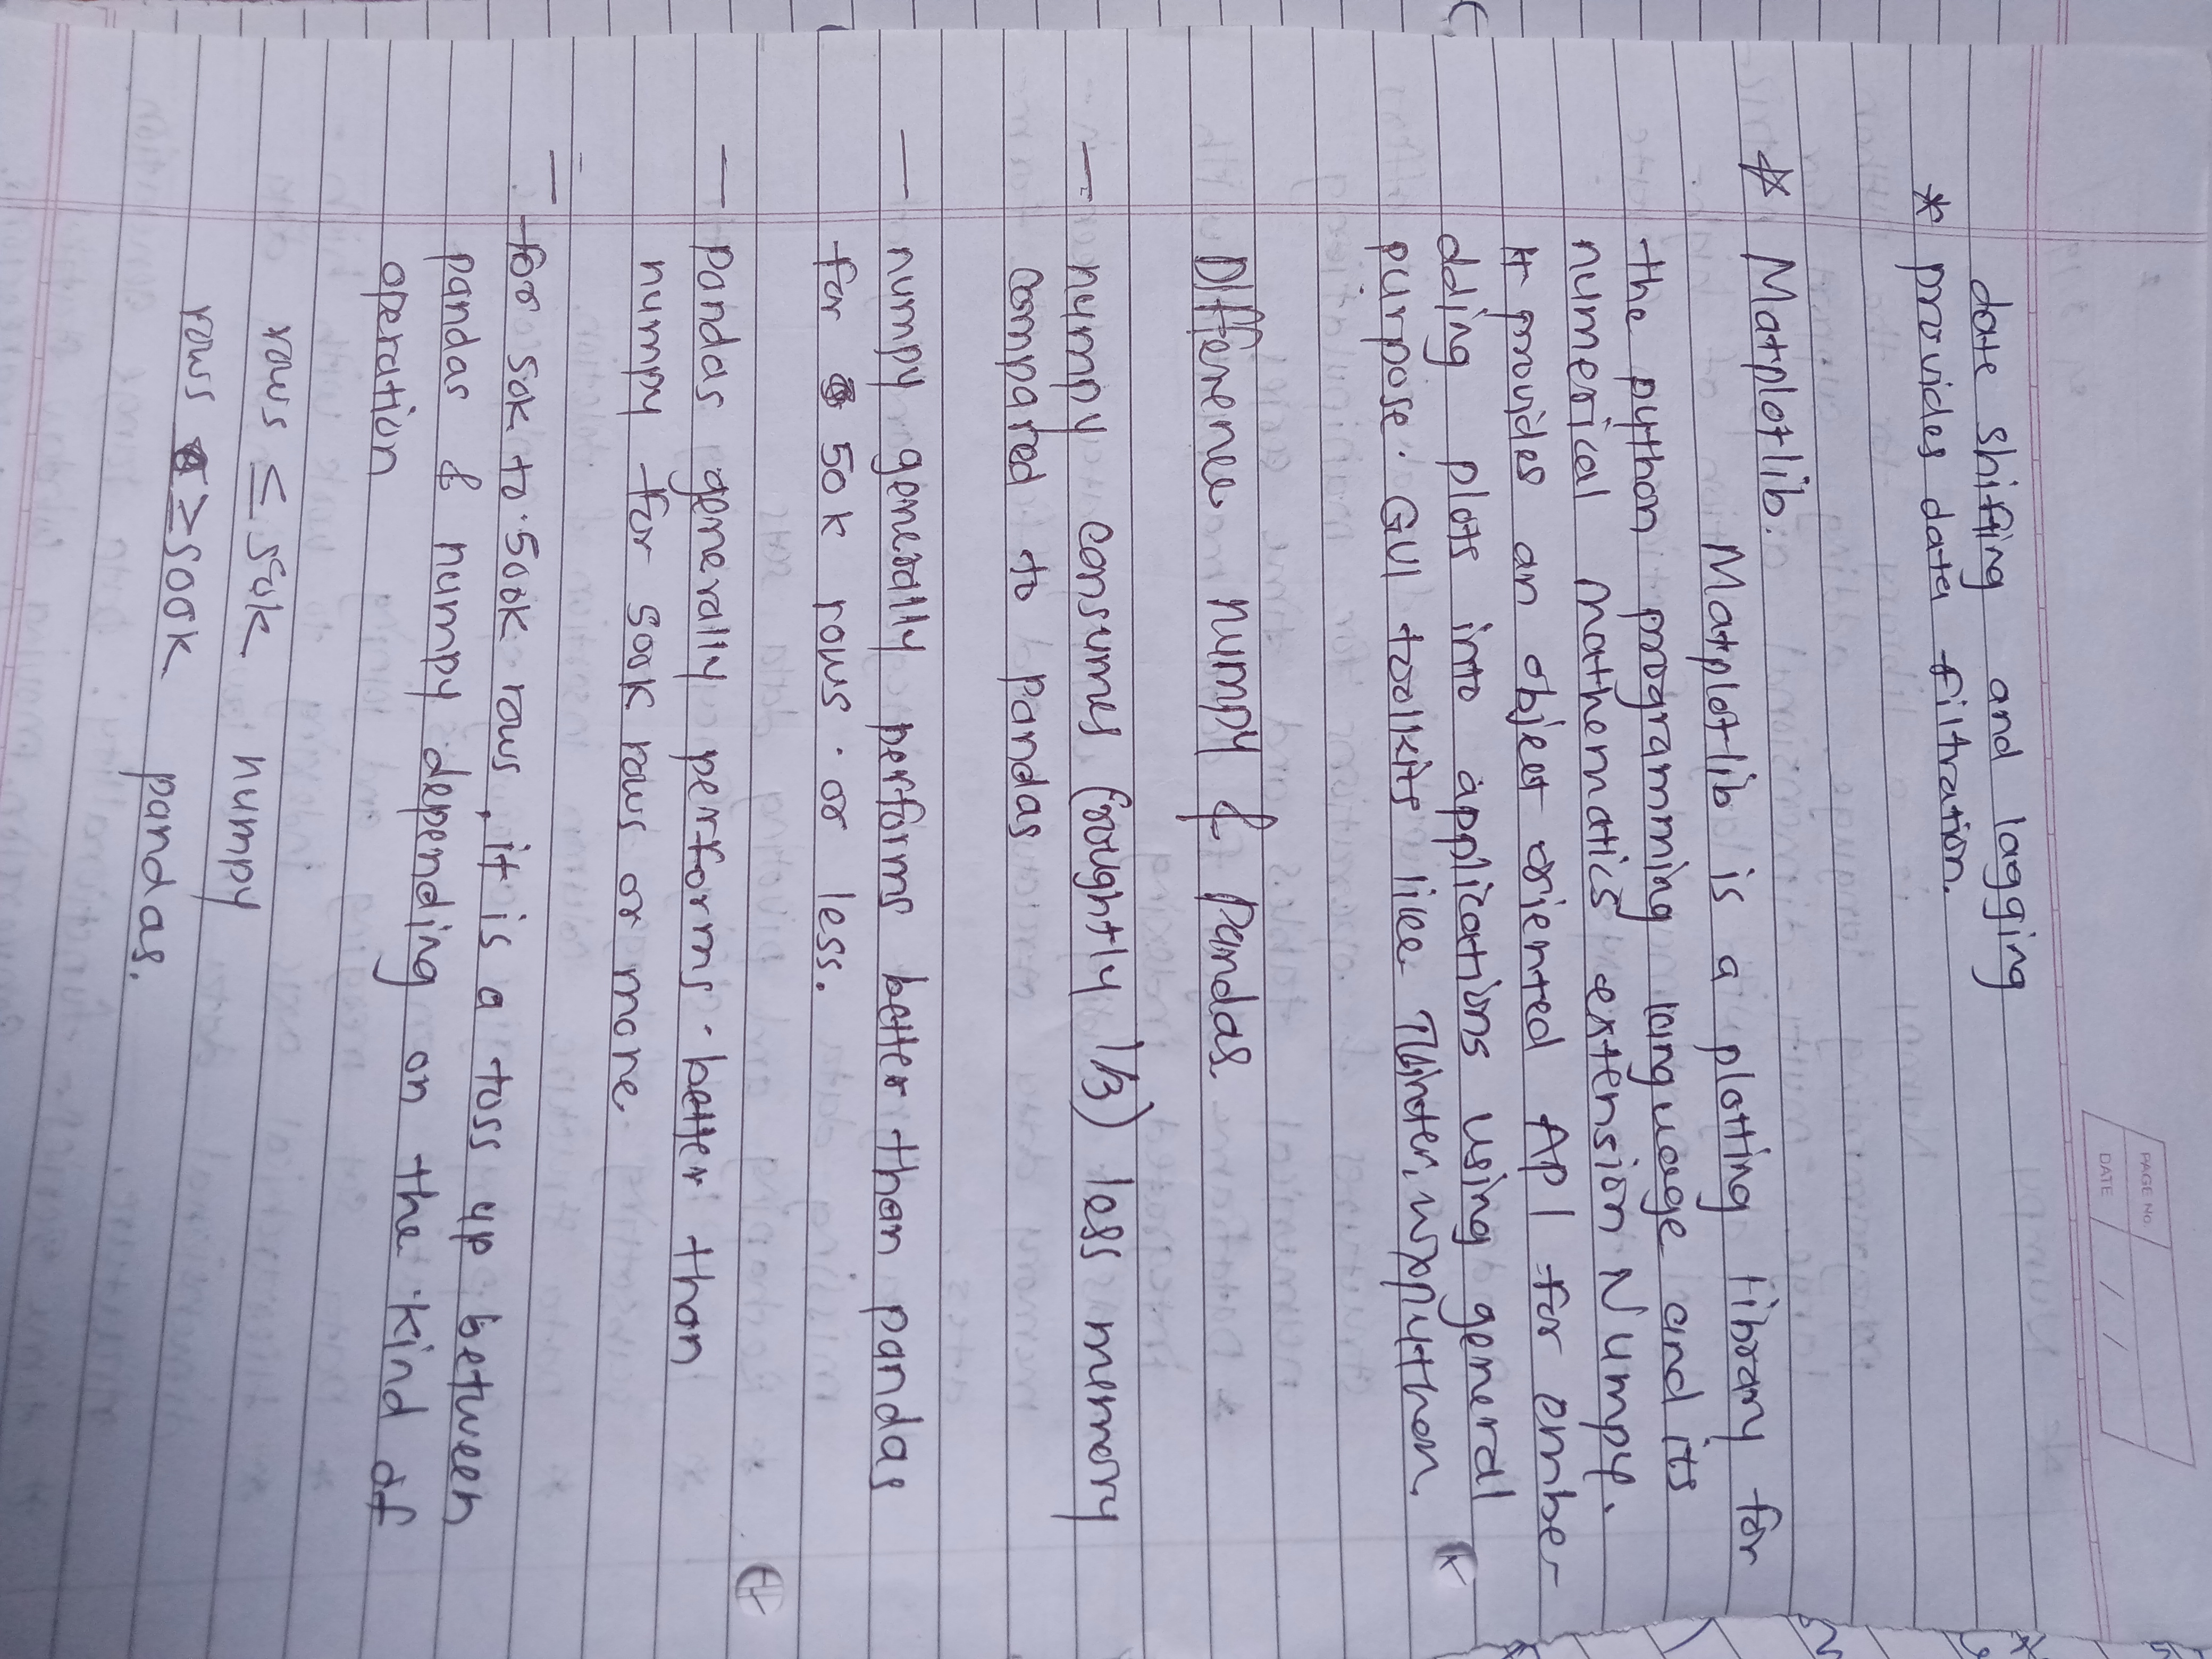 PAGE No.
DATE / /
date shifting and lagging
* provides data filtration.
* Matplotlib.
Matplotlib is a plotting library for
the python programming language and its
numerical mathematics extension Numpy.
It provides an object oriented API for embe-
dding plots into applications using general
purpose. GUI toolkits like Tkinter, wxpython.
Difference numpy & Pandas.
— numpy consumes (roughtly 1/3) less memory
compared to pandas
— numpy generally performs better than pandas
for 50k rows. or less.
— Pandas generally performs better than
numpy for 500K rows or more
— for 50K to 500K rows, it is a toss up between
pandas & numpy depending on the kind of
operation
rows ≤ 50k numpy
rows ≥500K pandas.